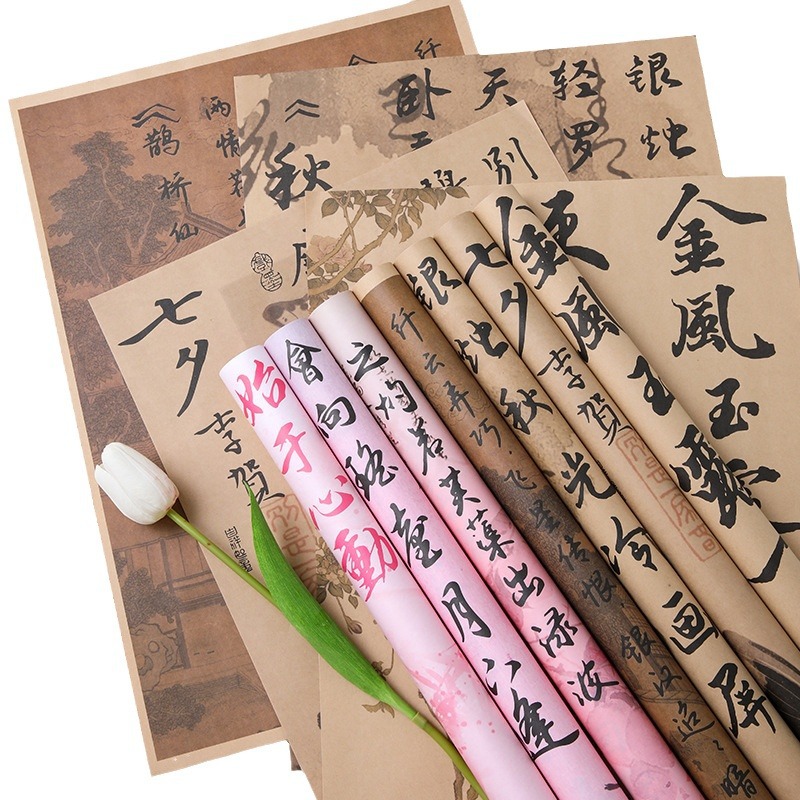 纤
兩情若
《鹊桥仙
银烛
轻罗
天
卧
《秋
别
七夕
李贺
金風玉露一
始于心動
會向瑤臺月下逢
之灼若芙蕖出渌波
纤云弄巧，飞星传恨，银汉迢迢暗
银烛秋光冷画屏
七夕
李贺
金風玉露